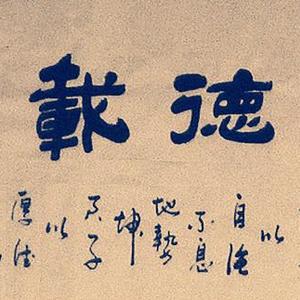 德載
以
自強
不息
地勢
坤
君子
以
厚德